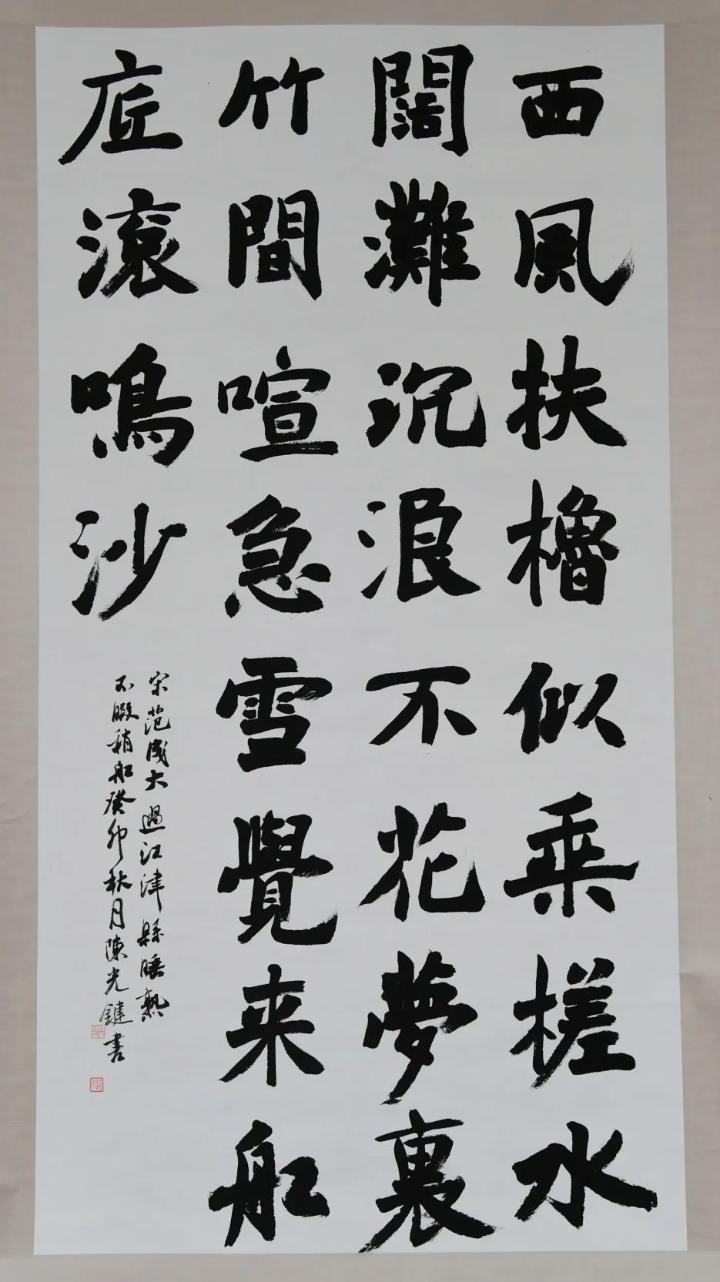 西風扶櫓似乘槎水
闊灘沉浪不花夢裏
竹間喧急雪覺来船
底滚鳴沙
宋范成大過江津縣睡熟
不暇稍船癸卯秋月陳光鍵書